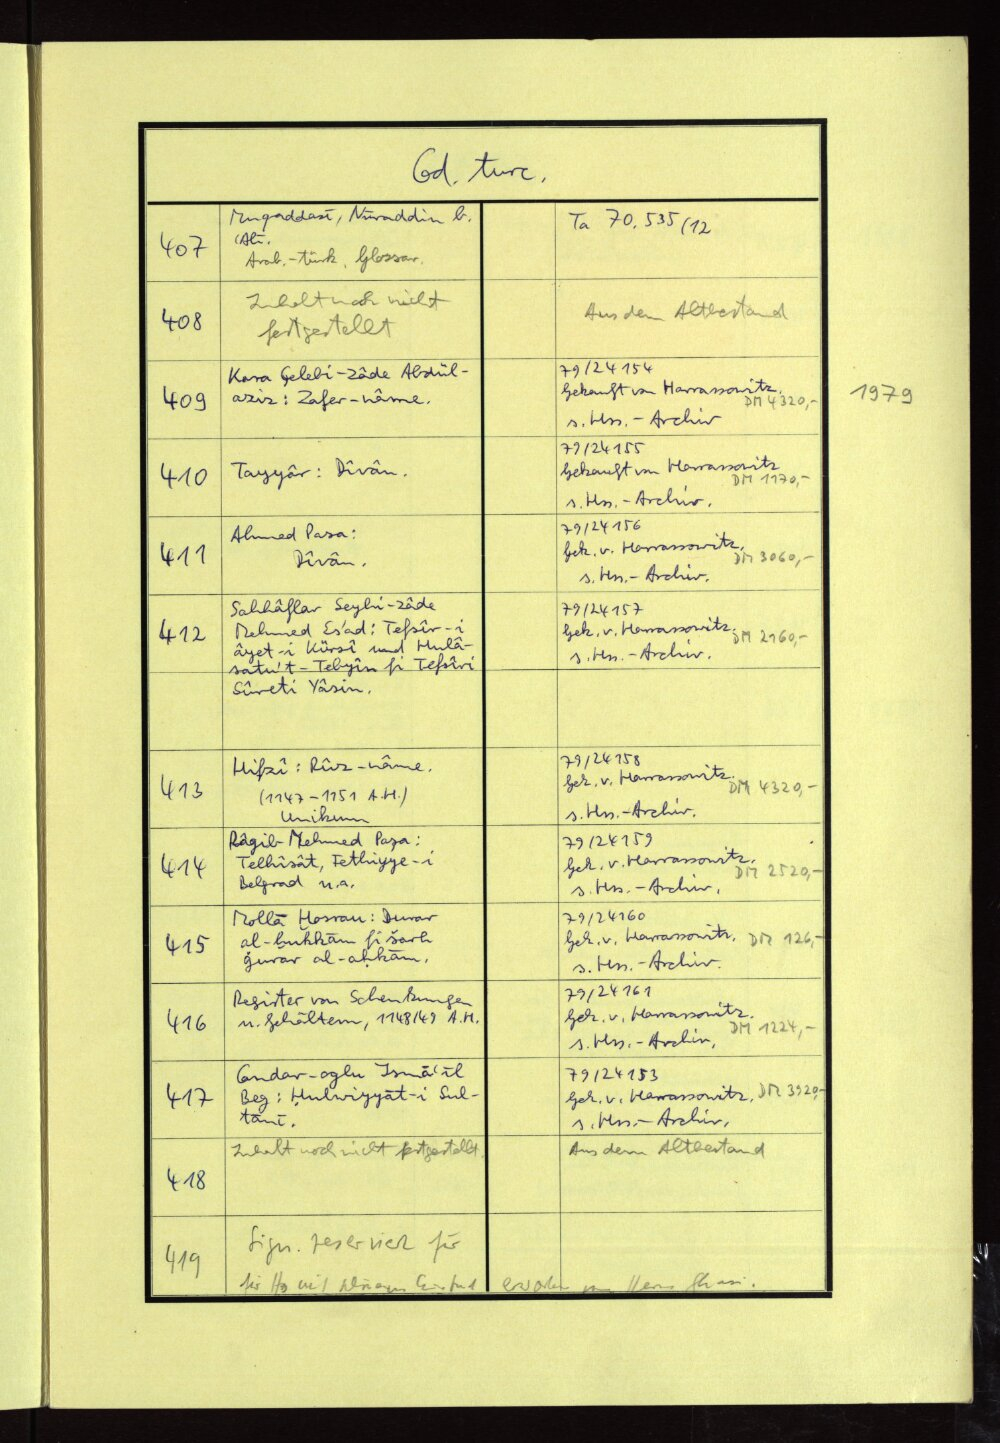 Cod. turc.
407
Muqaddasī, Nūraddīn b.
ʿAlī.
Arab.-türk. Glossar.
Ta 70.535/12
408
Inhalt noch nicht
festgestellt
Aus dem Altbestand
409
Kara Çelebi-zâde Abdül-
aziz: Zafer-nâme.
79/24154
Gekauft von Harrassowitz.
DM 4320,-
s. Hss.-Archiv
1979
410
Tayyâr: Dîvân.
79/24155
Gekauft von Harrassowitz
DM 1170,-
s. Hss.-Archiv.
411
Ahmed Paşa:
Dîvân.
79/24156
Gek. v. Harrassowitz.
DM 3060,-
s. Hss.-Archiv.
412
Sahhâflar Şeyhi-zâde
Mehmed Es'ad: Tefsîr-i
âyet-i Kürsî und Hulâ-
satu't-Tebyîn fi Tefsîri
Sûreti Yâsin.
79/24157
Gek. v. Harrassowitz.
DM 2160,-
s. Hss.-Archiv.
413
Hifzî: Rûz-nâme.
(1147-1151 A.H.)
Unikum
79/24158
Gek. v. Harrassowitz.
DM 4320,-
s. Hss.-Archiv.
414
Râgib Mehmed Paşa:
Telhîsât, Fethiyye-i
Belgrad u.a.
79/24159
Gek. v. Harrassowitz.
DM 2520,-
s. Hss.-Archiv.
415
Mollā Ḫosrau: Durar
al-ḥukkām fī šarḥ
ġurar al-aḥkām.
79/24160
Gek. v. Harrassowitz.
DM 126,-
s. Hss.-Archiv.
416
Register von Schenkungen
u. Gehältern, 1148/49 A.H.
79/24161
Gek. v. Harrassowitz.
DM 1224,-
s. Hss.-Archiv.
417
Candar-oglu Ismāʿīl
Beg: Ḥulwiyyāt-i Sul-
tānī.
79/24153
Gek. v. Harrassowitz.
DM 3920,-
s. Hss.-Archiv.
418
Inhalt noch nicht festgestellt.
Aus dem Altbestand
419
Sign. reserviert für
für Hs mit von Herrn